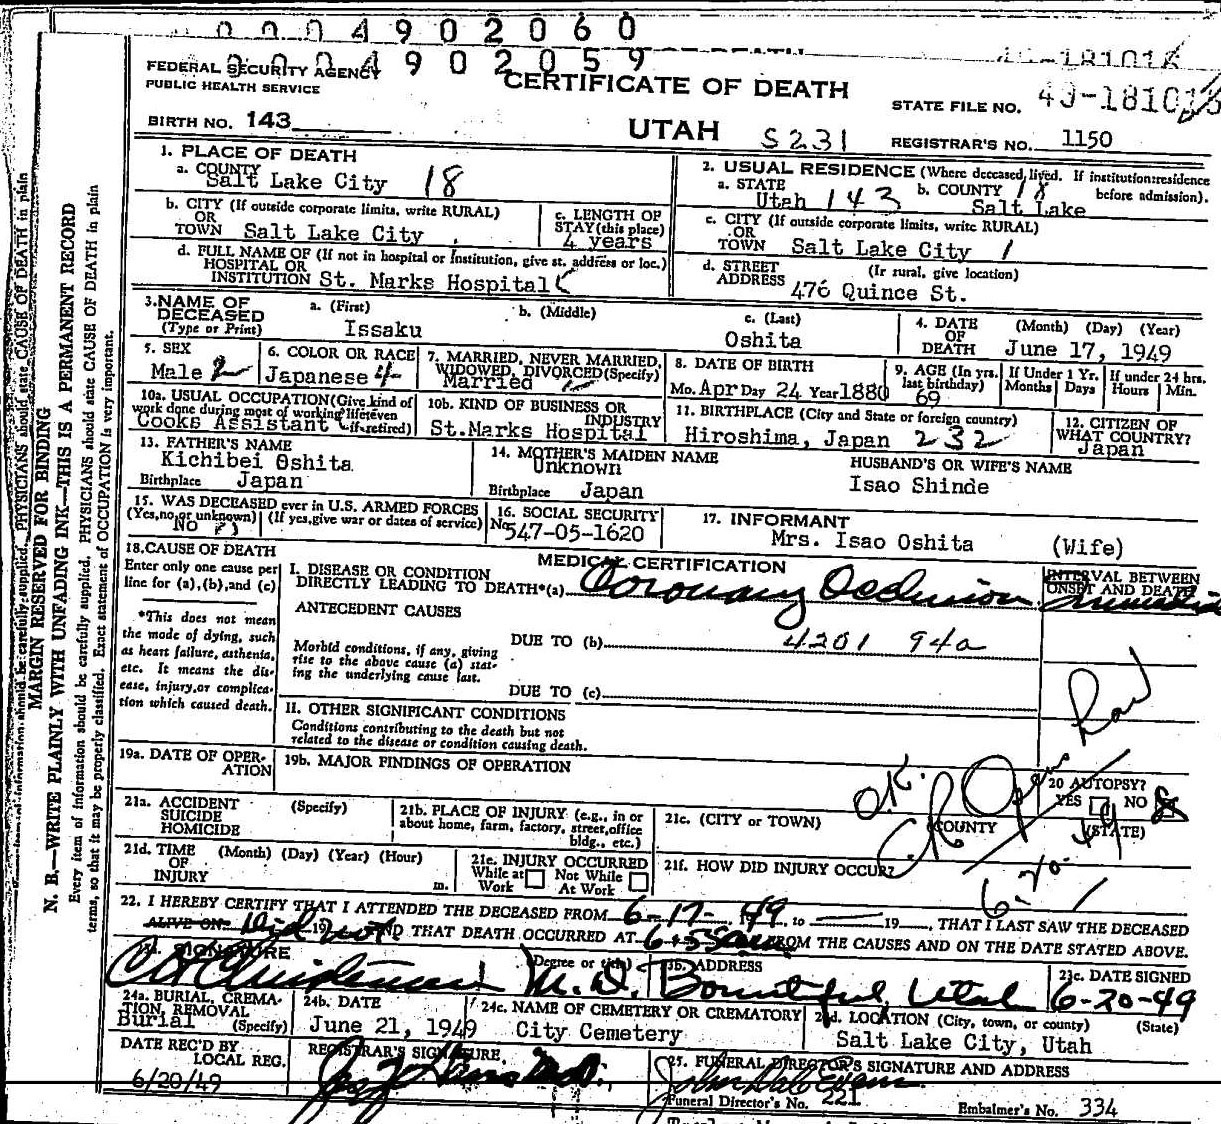 0004902060
0004902059
FEDERAL SECURITY AGENCY
PUBLIC HEALTH SERVICE
CERTIFICATE OF DEATH
STATE FILE NO.
BIRTH NO. 143
UTAH S231
REGISTRAR'S NO. 1150
1. PLACE OF DEATH
a. COUNTY
Salt Lake City 18
2. USUAL RESIDENCE (Where deceased lived. If institution: residence before admission).
a. STATE Utah 143 b. COUNTY 18 Salt Lake
b. CITY (If outside corporate limits, write RURAL)
OR
TOWN Salt Lake City
c. LENGTH OF STAY (this place)
4 years
c. CITY (If outside corporate limits, write RURAL)
OR
TOWN Salt Lake City 1
d. FULL NAME OF (If not in hospital or institution, give st. address or loc.)
HOSPITAL OR
INSTITUTION St. Marks Hospital
d. STREET (If rural, give location)
ADDRESS 476 Quince St.
3. NAME OF DECEASED
(Type or Print)
a. (First) Issaku
b. (Middle)
c. (Last) Oshita
4. DATE OF DEATH (Month) (Day) (Year)
June 17, 1949
5. SEX
Male 2
6. COLOR OR RACE
Japanese 4
7. MARRIED, NEVER MARRIED, WIDOWED, DIVORCED (Specify)
Married
8. DATE OF BIRTH
Mo. Apr Day 24 Year 1880
9. AGE (In yrs. last birthday)
69
If Under 1 Yr. Months Days
If under 24 hrs. Hours Min.
10a. USUAL OCCUPATION (Give kind of work done during most of working life, even if retired)
Cooks Assistant
10b. KIND OF BUSINESS OR INDUSTRY
St.Marks Hospital
11. BIRTHPLACE (City and State or foreign country)
Hiroshima, Japan 232
12. CITIZEN OF WHAT COUNTRY?
Japan
13. FATHER'S NAME
Kichibei Oshita
Birthplace Japan
14. MOTHER'S MAIDEN NAME
Unknown
Birthplace Japan
HUSBAND'S OR WIFE'S NAME
Isao Shinde
15. WAS DECEASED ever in U.S. ARMED FORCES
(Yes, no, or unknown) (If yes, give war or dates of service)
No
16. SOCIAL SECURITY
No. 547-05-1620
17. INFORMANT
Mrs. Isao Oshita (Wife)
18. CAUSE OF DEATH
Enter only one cause per line for (a), (b), and (c)
MEDICAL CERTIFICATION
I. DISEASE OR CONDITION
DIRECTLY LEADING TO DEATH*(a) Coronary Occlusion
INTERVAL BETWEEN ONSET AND DEATH
*This does not mean the mode of dying, such as heart failure, asthenia, etc. It means the disease, injury, or complication which caused death.
ANTECEDENT CAUSES
Morbid conditions, if any, giving rise to the above cause (a) stating the underlying cause last.
DUE TO (b) 4201 94a
DUE TO (c)
II. OTHER SIGNIFICANT CONDITIONS
Conditions contributing to the death but not related to the disease or condition causing death.
19a. DATE OF OPERATION
19b. MAJOR FINDINGS OF OPERATION
O.K.
20 AUTOPSY?
YES NO
21a. ACCIDENT
SUICIDE
HOMICIDE
(Specify)
21b. PLACE OF INJURY (e.g., in or about home, farm, factory, street, office bldg., etc.)
21c. (CITY or TOWN) (COUNTY) (STATE)
21d. TIME OF INJURY (Month) (Day) (Year) (Hour) m.
21e. INJURY OCCURRED
While at Work Not While At Work
21f. HOW DID INJURY OCCUR?
22. I HEREBY CERTIFY THAT I ATTENDED THE DECEASED FROM 6-17- 49, to 19 , THAT I LAST SAW THE DECEASED
ALIVE ON Did not 19 AND THAT DEATH OCCURRED AT FROM THE CAUSES AND ON THE DATE STATED ABOVE.
SIGNATURE
(Degree or title) M.D.
23b. ADDRESS
Bountiful, Utah
23c. DATE SIGNED
6-20-49
24a. BURIAL, CREMATION, REMOVAL
Burial (Specify)
24b. DATE
June 21, 1949
24c. NAME OF CEMETERY OR CREMATORY
City Cemetery
24d. LOCATION (City, town, or county) (State)
Salt Lake City, Utah
DATE REC'D BY LOCAL REG.
6/20/49
REGISTRAR'S SIGNATURE
25. FUNERAL DIRECTOR'S SIGNATURE AND ADDRESS
Funeral Director's No. 221
Embalmer's No. 334
MARGIN RESERVED FOR BINDING
N. B.—WRITE PLAINLY WITH UNFADING INK—THIS IS A PERMANENT RECORD
Every item of information should be carefully supplied. PHYSICIANS should state CAUSE OF DEATH in plain
terms, so that it may be properly classified. Exact statement of OCCUPATION is very important.